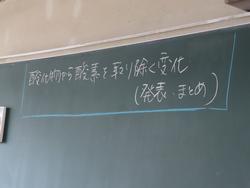 酸化物から酸素を取り除く変化
(発表、まとめ)